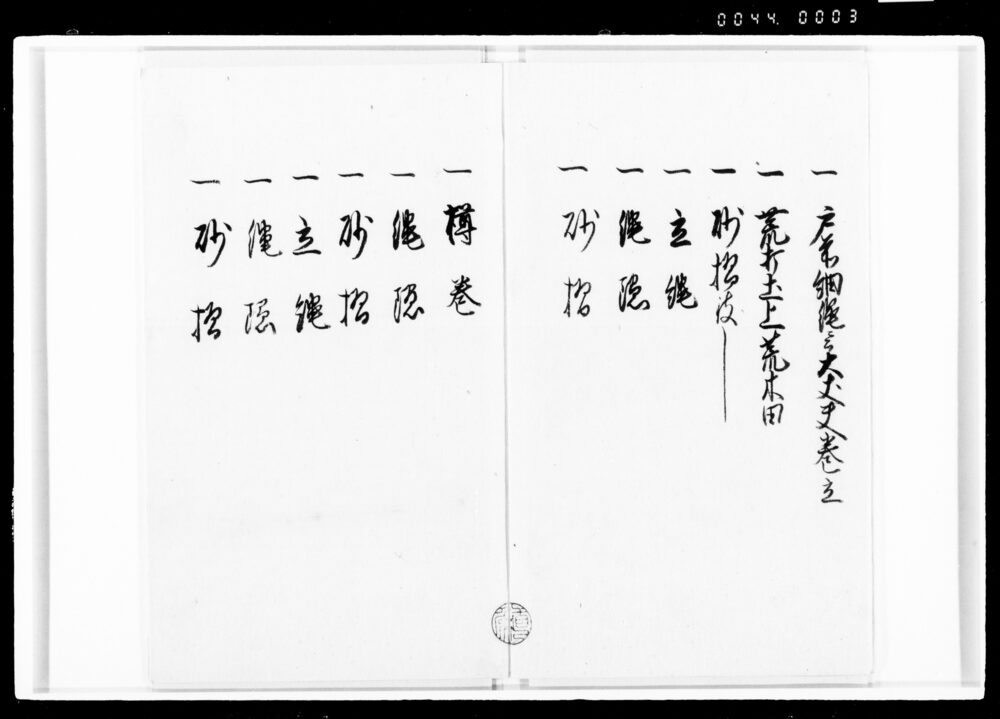 0044. 0003
一 戸前細縄ニ而大丈夫巻立
一 荒打土上荒木田
一 砂摺
一 立縄
一 縄隠
一 砂摺
一 樽巻
一 縄隠
一 砂摺
一 立縄
一 縄隠
一 砂摺